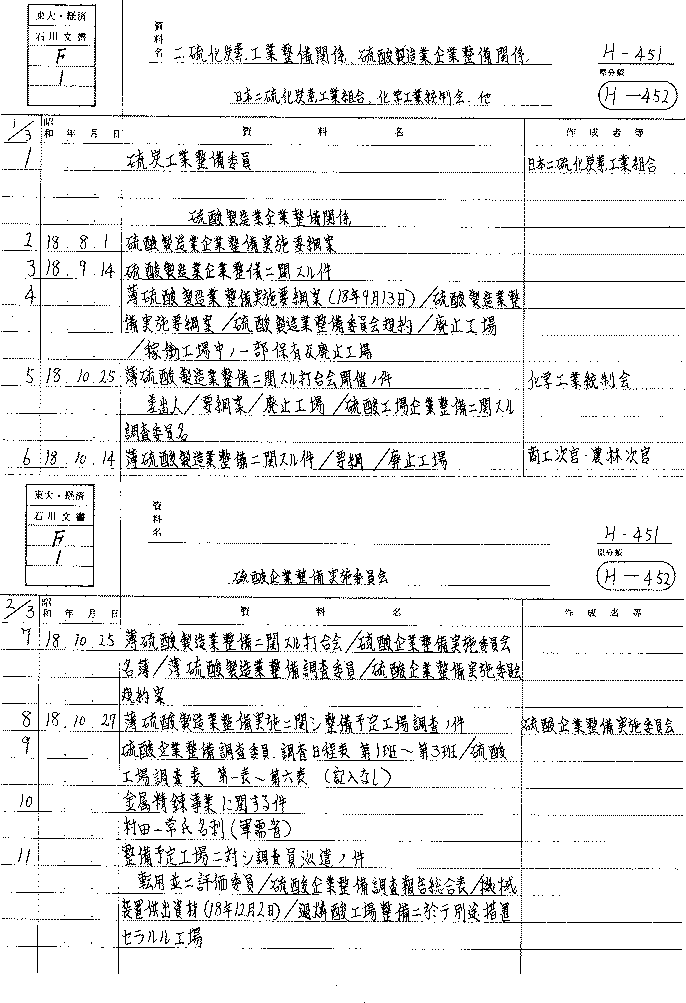 東大・経済
石川文書
F
1
資料名
二硫化炭素工業整備関係、硫酸製造業企業整備関係
日本二硫化炭素工業組合、化学工業統制会、他
H-451
原分類
H-452
1/3 昭和 年 月 日 資 料 名 作 成 者 等
1 硫炭工業整備委員 日本二硫化炭素工業組合
硫酸製造業企業整備関係
2 18.8.1 硫酸製造業企業整備実施要綱案
3 18.9.14 硫酸製造業企業整備ニ関スル件
4 薄硫酸製造業整備実施要綱案(18年9月13日)/硫酸製造業整
備実施要綱案/硫酸製造業整備委員会規約/廃止工場
/稼働工場中ノ一部保有及廃止工場
5 18.10.25 薄硫酸製造業整備ニ関スル打合会開催ノ件 化学工業統制会
差出人/要綱案/廃止工場/硫酸工場企業整備ニ関スル
調査委員名
6 18.10.14 薄硫酸製造業整備ニ関スル件/要綱/廃止工場 商工次官・農林次官
東大・経済
石川文書
F
1
資料名
硫酸企業整備実施委員会
H-451
原分類
H-452
2/3 昭和 年 月 日 資 料 名 作 成 者 等
7 18.10.25 薄硫酸製造業整備ニ関スル打合会/硫酸企業整備実施委員会
名簿/薄硫酸製造業整備調査委員/硫酸企業整備実施委員会
規約案
8 18.10.29 薄硫酸製造業整備実施ニ関シ整備予定工場調査ノ件 硫酸企業整備実施委員会
9 硫酸企業整備調査委員、調査日程表 第1班〜第3班/硫酸
工場調査表 第一表〜第六表 (記入なし)
10 金属精錬事業に関する件
村田一革氏名刺(軍需省)
11 整備予定工場ニ対シ調査員派遣ノ件
転用並ニ評価委員/硫酸企業整備調査報告総合表/機械
装置供出資材(18年12月2日)/過燐酸工場整備ニ於テ別途措置
セラルル工場